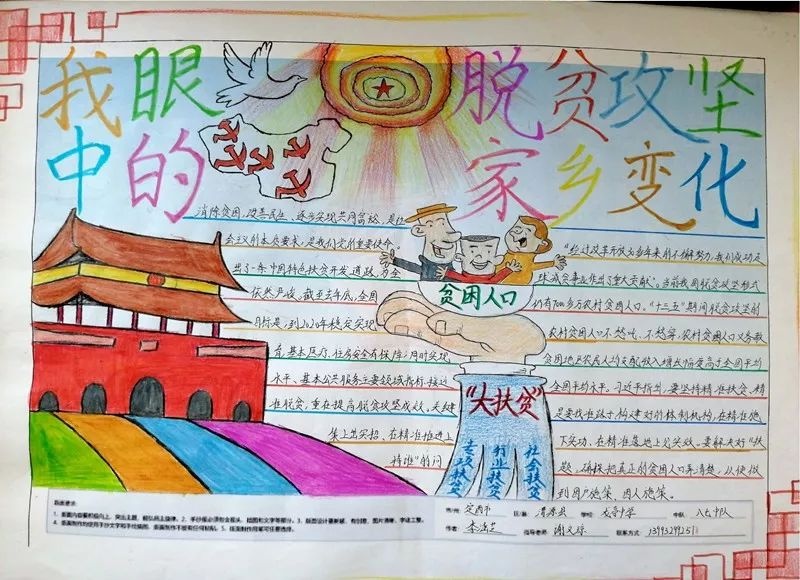 我眼中的
脱贫攻坚
家乡变化
消除贫困,改善民生,逐步实现共同富裕,是社
会主义的本质要求,是我们党的重要使命。
出了一条中国特色扶贫开发道路,为全
依然严峻,截至去年底,全国
目标是,到2020年稳定实现
育、基本医疗、住房安全有保障,同时实现
水平、基本公共服务主要领域指标接近
准脱贫,重在提高脱贫攻坚成效,关键
策上出实招,在精准推进上
精准"的问
"经过改革开放
年来的不懈努力,我们成功走
球减贫事业作出了重大贡献。当前我国脱贫攻坚形式
仍有7000多万农村贫困人口。"十三五"期间脱贫攻坚的
农村贫困人口不愁吃、不愁穿,农村贫困人口义务教
贫困地区农民人均支配收入增长幅度高于全国平均
全国平均水平。习近平指出,要坚持精准扶贫、精
是要找准路子、构建好的体制机制,在精准施
下实功,在精准落地上见实效。要解决好"扶
题,确保把真正的贫困人口弄清楚,以便做
到因户施策、因人施策。
贫困人口
"大扶贫"
专项扶贫
行业扶贫
社会扶贫
版面要求:
市/州:定西市 区/县:渭源县 学校: 中学 中队:八七中队
作者:李 指导老师:谢 联系方式: